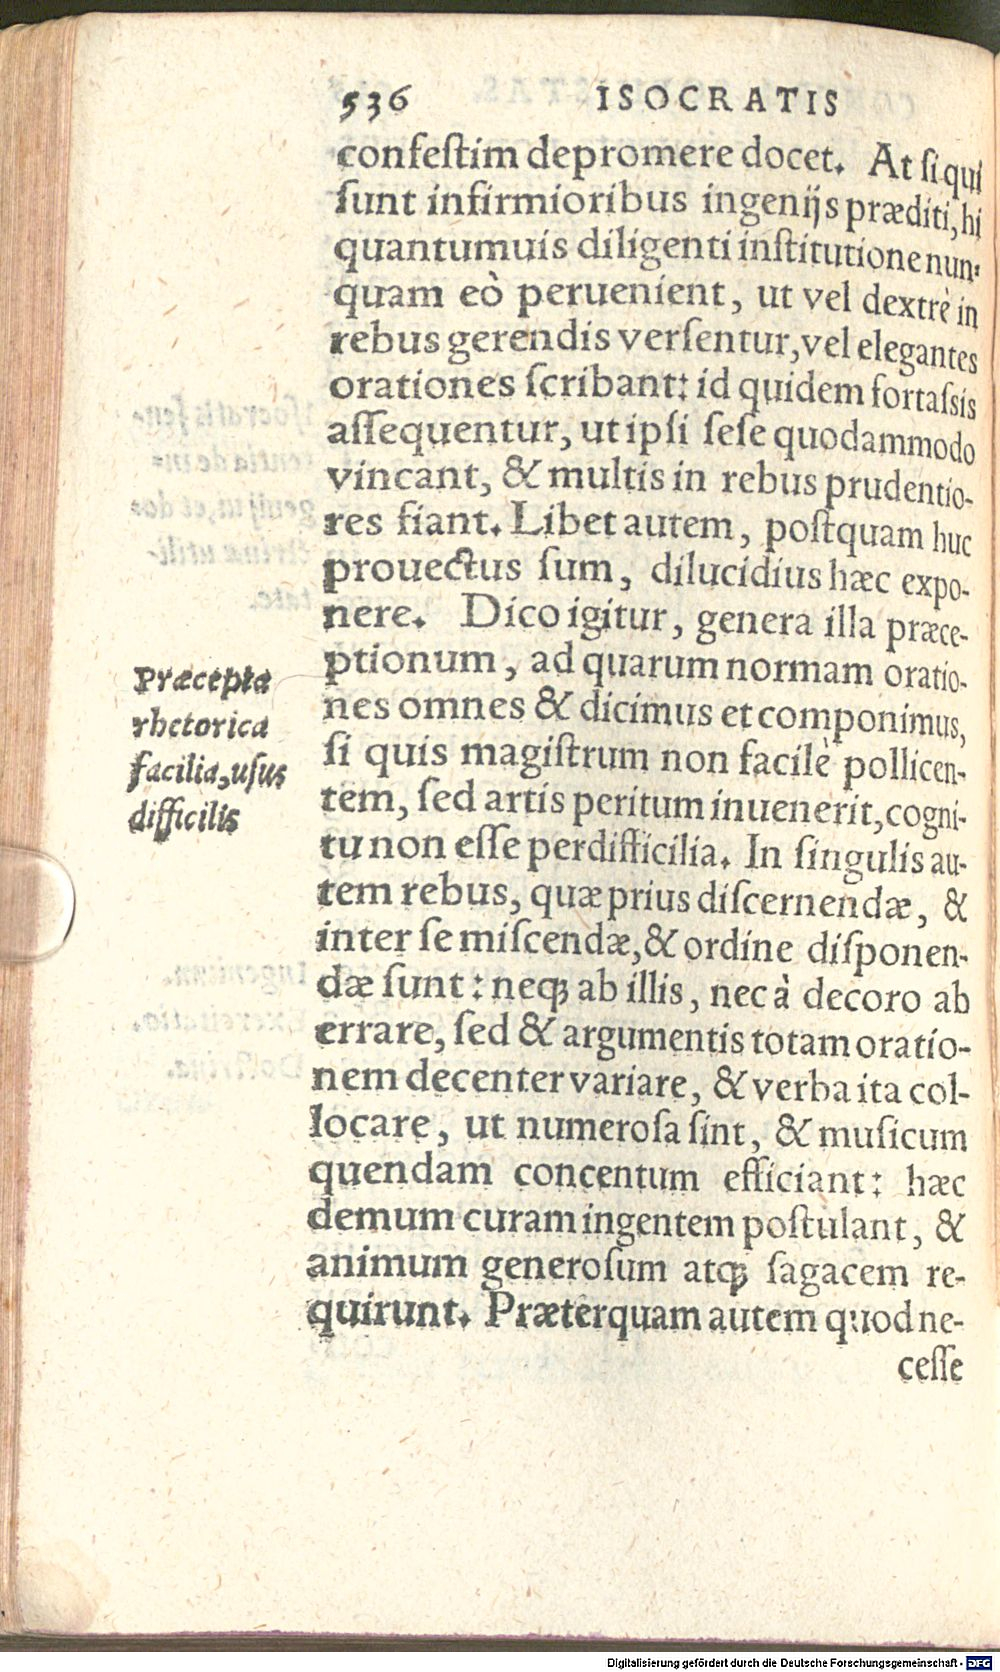 536 ISOCRATIS
confeſtim depromere docet. At ſi qui
ſunt infirmioribus ingenijs præditi, hi
quantumuis diligenti inſtitutione nun-
quam eò peruenient, ut vel dextrè in
rebus gerendis verſentur, vel elegantes
orationes ſcribant: id quidem fortaſsis
aſſequentur, ut ipſi ſeſe quodammodo
vincant, & multis in rebus prudentio-
res fiant. Libet autem, poſtquam huc
prouectus ſum, dilucidius hæc expo-
nere. Dico igitur, genera illa præce-
ptionum, ad quarum normam oratio-
nes omnes & dicimus et componimus,
ſi quis magiſtrum non facilè pollicen-
tem, ſed artis peritum inuenerit, cogni-
tu non eſſe perdifficilia. In ſingulis au-
tem rebus, quæ prius diſcernendæ, &
inter ſe miſcendæ, & ordine diſponen-
dæ ſunt: neq; ab illis, nec à decoro ab
errare, ſed & argumentis totam oratio-
nem decenter variare, & verba ita col-
locare, ut numeroſa ſint, & muſicum
quendam concentum efficiant: hæc
demum curam ingentem poſtulant, &
animum generoſum atq; ſagacem re-
quirunt. Præterquam autem quod ne-
ceſſe
Præcepta
rhetorica
facilia, uſus
difficilis
Digitalisierung gefördert durch die Deutsche Forschungsgemeinschaft - DFG